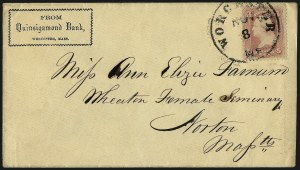 FROM
Quinsigamond Bank,
WORCESTER, MASS.
WORCESTER
NOV
8
MS.
Miss Ann Eliza Farnum
Wheaton Female Seminary
Norton
Mass